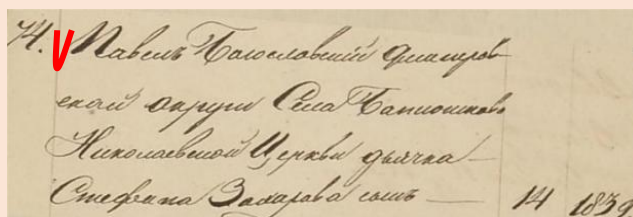 74. Павелъ Богословскій Дмитров
ской округи Села
Николаевской Церкви дьячка
Стефана Захарова сынъ — 14 1839